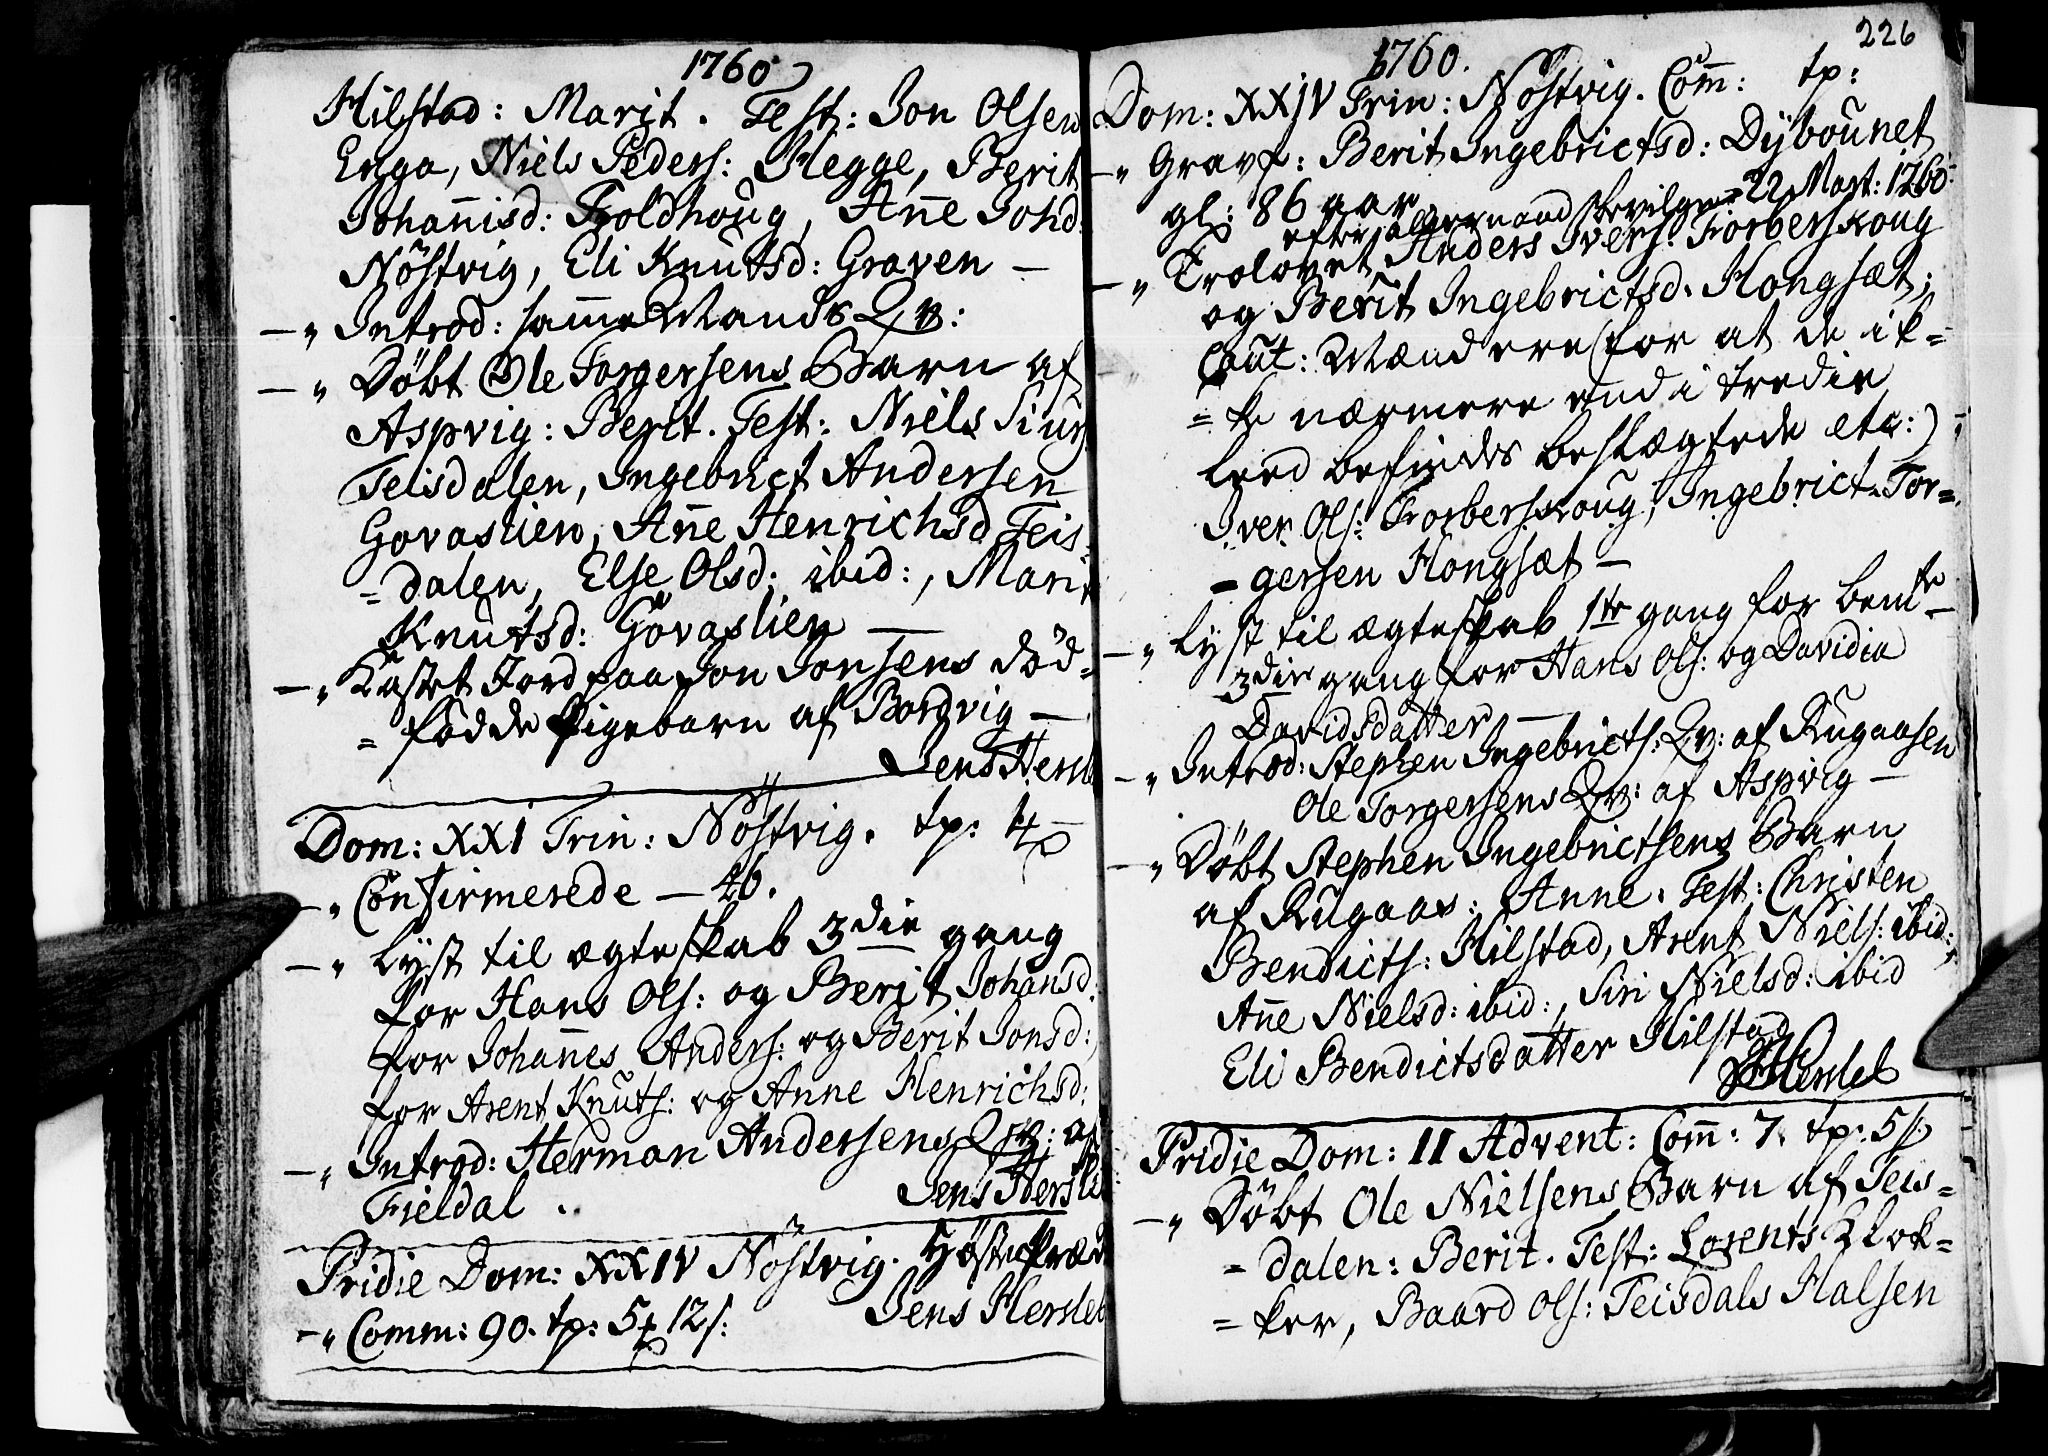 1760
Hilstad: Marit. Test: Jon Olsen
Enga, Niels Peders: Hegge, Berit
Johannisd: Foldhoug, Anne Johd:
Nöstvig, Eli Knutsd: Graven —
—" Introd: samme Mands Qv:
—" Döbt Ole Torgersens Barn af
Aspvig: Berit. Test: Niels Siur
Teisdalen, Ingebrict Andersen
Govaslien, Anne Henrichsd Teis-
= dalen, Else Olsd: ibid:, Marit
Knutsd: Govaslien —
—" Kastet Jord paa Jon Jonsens död-
= födde Pigebarn af Bordvig —
Jens Hersleb
Dom: XXI Trin: Nöstvig. tp: 4
—" Confirmerede — 46.
—" Lyst til ægteskab 3die gang
for Hans Ols: og Berit Johansd:
for Johannes Anders: og Berit Jonsd:
for Arent Knuts: og Anne Henrichsd:
—" Introd: Herman Andersens Qv: af
Fieldal.
Jens Hersleb
Pridie Dom: XXIV Nöstvig.
—" Comm: 90. tp: 5 12 s:
Jens Hersleb
226
1760.
Dom: XXIV Trin: Nöstvig. Com: tp:
—" Gravf: Berit Ingebrictsd: Dybounet
gl: 86 aar
efter Bevilgn: 22 Mart: 1760:
—" Trolovet Anders Ivers: Forberskoug
og Berit Ingebrictsd: Hongsæt;
Caut: Mændene (for at de ik-
= ke nærmere end i tredie
Leed befindes beslægtede etc:)
Iver Ols: Forberskoug, Ingebrict Tor-
= gersen Hongsæt —
—" Lyst til ægteskab 1ste gang for bemte
3die gang for Hans Ols: og Davidia
Davidsdatter —
—" Introd: Stephen Ingebricts: Qv: af Rugaasen
Ole Torgersens Qv: af Aspvig —
—" Döbt Stephen Ingebrictsens Barn
af Rugaas: Anne. Test: Christen
Bendicts: Hilstad, Arent Niels: ibid:
Anne Nielsd: ibid:, Siri Nielsd: ibid
Eli Bendictsdatter Hilstad
JHersleb
Pridie Dom: II Advent: Com: 7. tp: 5
—" Döbt Ole Nielsens Barn af Teis-
= dalen: Berit. Test: Lorents Klok-
= ker, Baard Ols: Teisdals Halsen